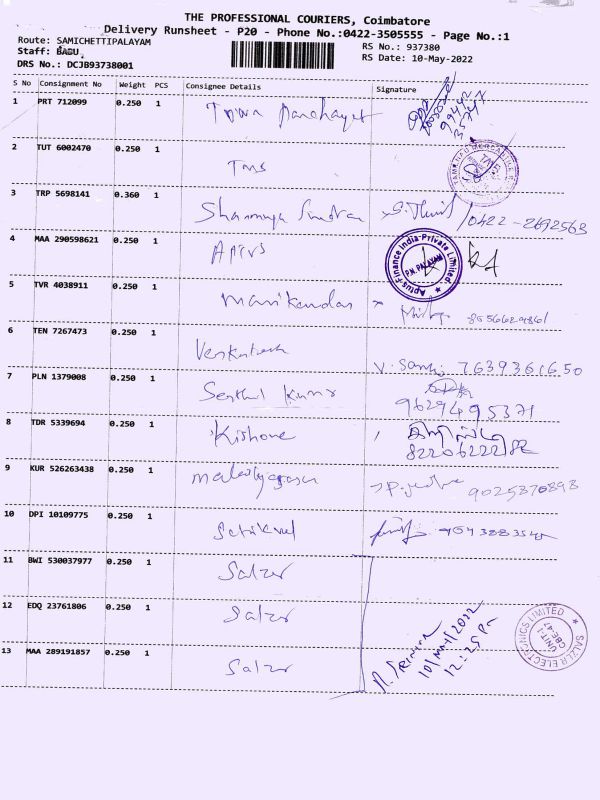 THE PROFESSIONAL COURIERS, Coimbatore
Delivery Runsheet - P20 - Phone No.:0422-3505555 - Page No.:1
Route: SAMICHETTIPALAYAM RS No.: 937380
Staff: BABU RS Date: 10-May-2022
DRS No.: DCJB93738001
S No Consignment No Weight PCS Consignee Details Signature
1 PRT 712099 0.250 1 Town Panchayat
2 TUT 6002470 0.250 1 Tans
3 TRP 5698141 0.360 1 Shanmuga Sundran 0422-2692563
4 MAA 290598621 0.250 1 Aptus
Aptus Finance India Private Limited
P.N. PALAYAM
5 TVR 4038911 0.250 1 Manikandan
6 TEN 7267473 0.250 1 Venkatesh V. 7639361650
7 PLN 1379008 0.250 1 Senthil Kumar 9629495371
8 TDR 5339694 0.250 1 Kishore 8220622282
9 KUR 526263438 0.250 1 9025370898
10 DPI 10109775 0.250 1
11 BWI 530037977 0.250 1 Salzer
12 EDQ 23761806 0.250 1 Salzer
13 MAA 289191857 0.250 1 Salzer
10/May/2022
12:25 Pm
SALZER ELECTRONICS LIMITED
UNIT-1
CBE-47